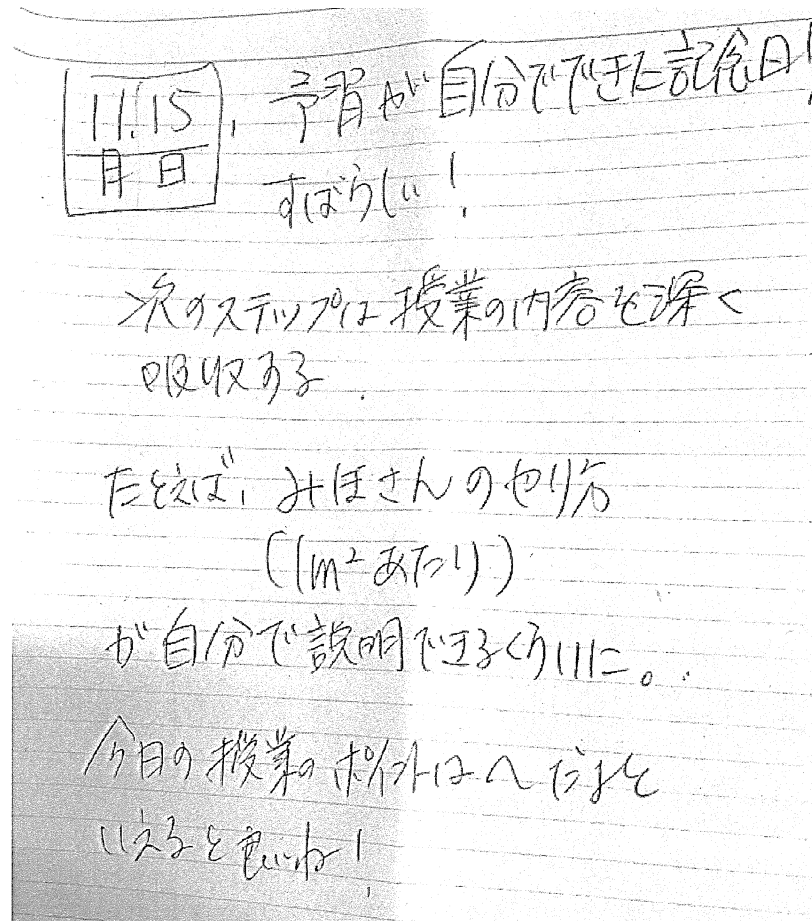 11.15
月 日
、予習が自分でできた記念日!
すばらしい!
次のステップは授業の内容を深く
吸収する.
たとえば、みほさんのやり方
(1m²あたり)
が自分で説明できるくらいに。
今日の授業のポイントは〜だよと
いえると良いね!